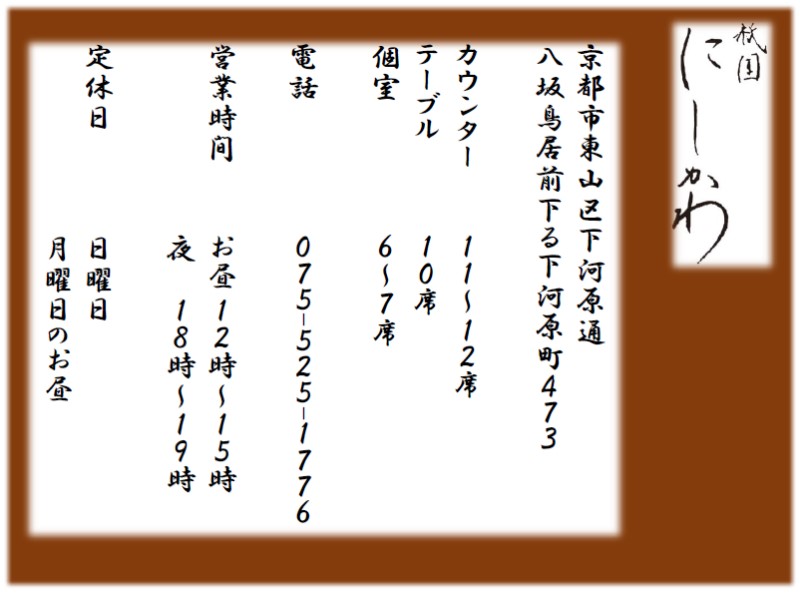 祇園
にしかわ
京都市東山区下河原通
八坂鳥居前下る下河原町473
カウンター 11~12席
テーブル 10席
個室 6~7席
電話 075-525-1776
営業時间 お昼 12時~15時
夜 18時~19時
定休日 日曜日
月曜日のお昼